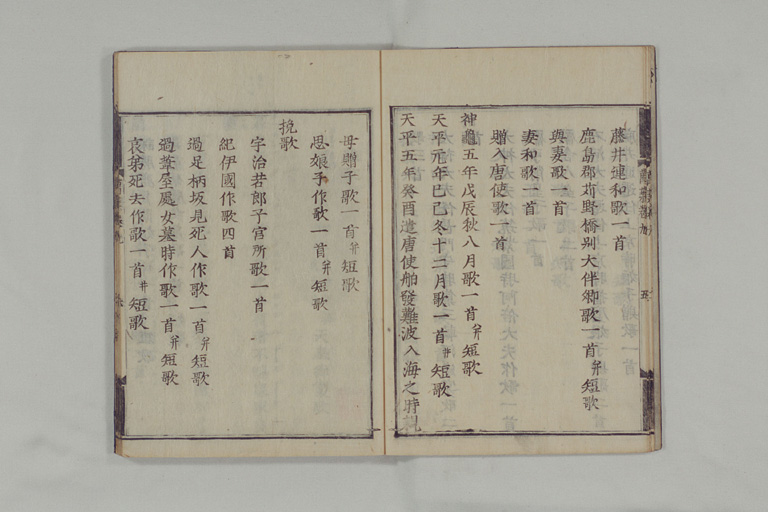 藤井連和歌一首
鹿島郡苅野橋別大伴卿歌一首并短歌
與妻歌一首
妻和歌一首
贈入唐使歌一首
神龜五年戊辰秋八月歌一首并短歌
天平元年己巳冬十二月歌一首并短歌
天平五年癸酉遣唐使舶發難波入海之時親
母贈子歌一首并短歌
思娘子作歌一首并短歌
挽歌
宇治若郎子宮所歌一首
紀伊國作歌四首
過足柄坂見死人作歌一首并短歌
過葦屋處女墓時作歌一首并短歌
哀弟死去作歌一首并短歌